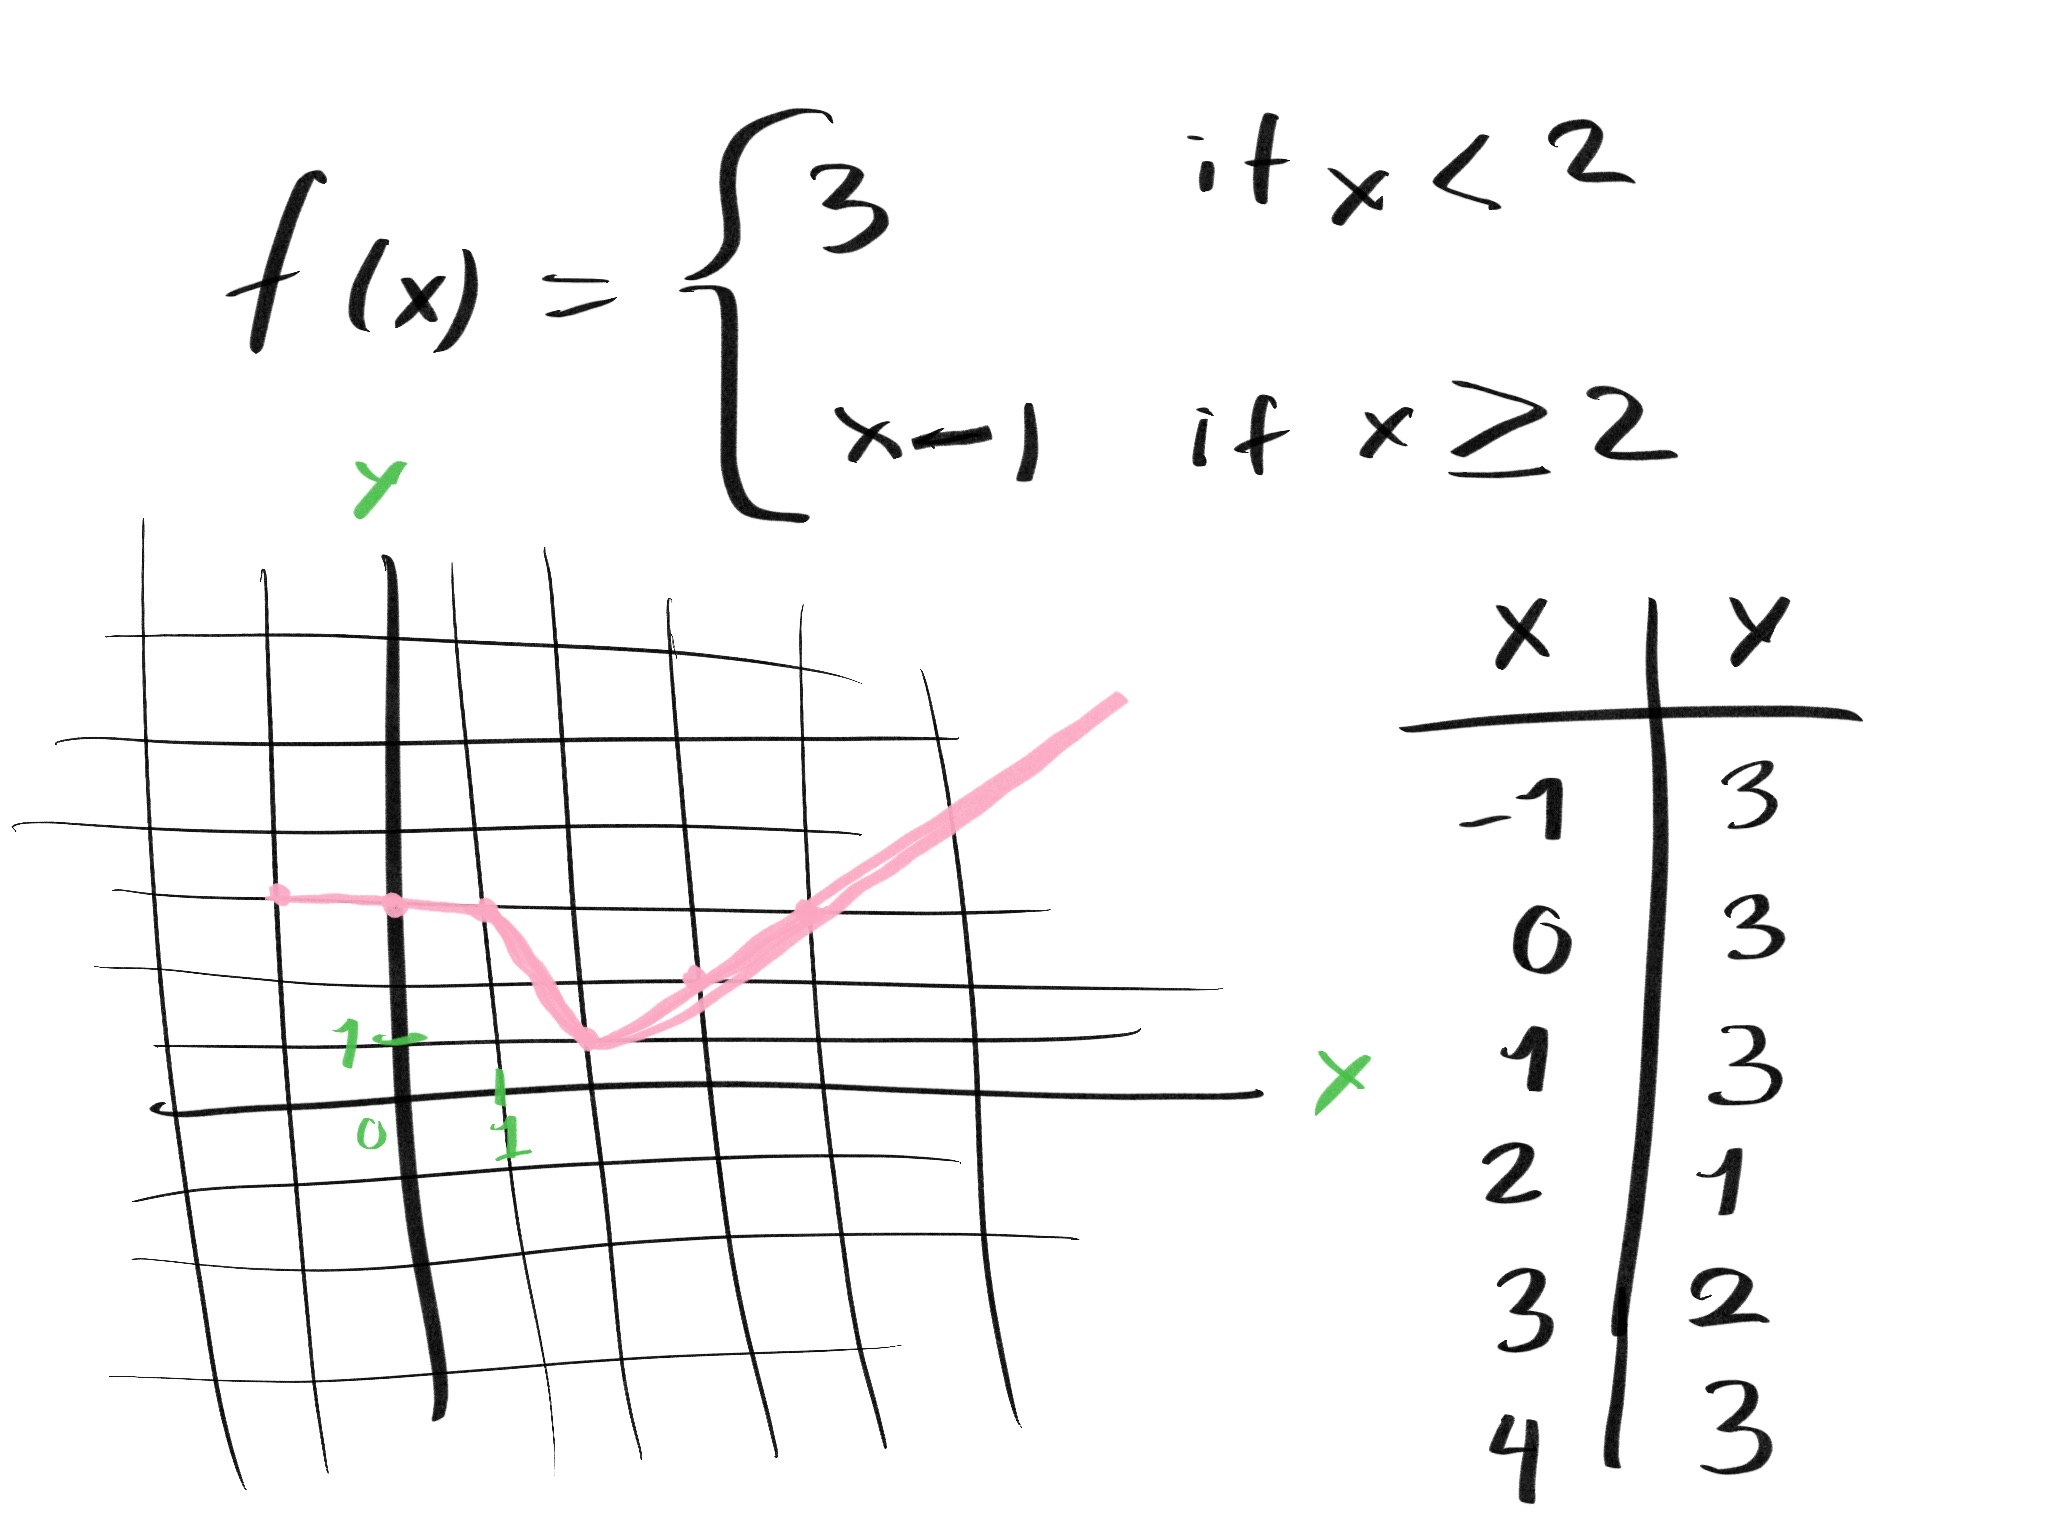 f(x) = { 3 if x < 2
x-1 if x ≥ 2
y
1
0 1
x
x y
-1 3
0 3
1 3
2 1
3 2
4 3